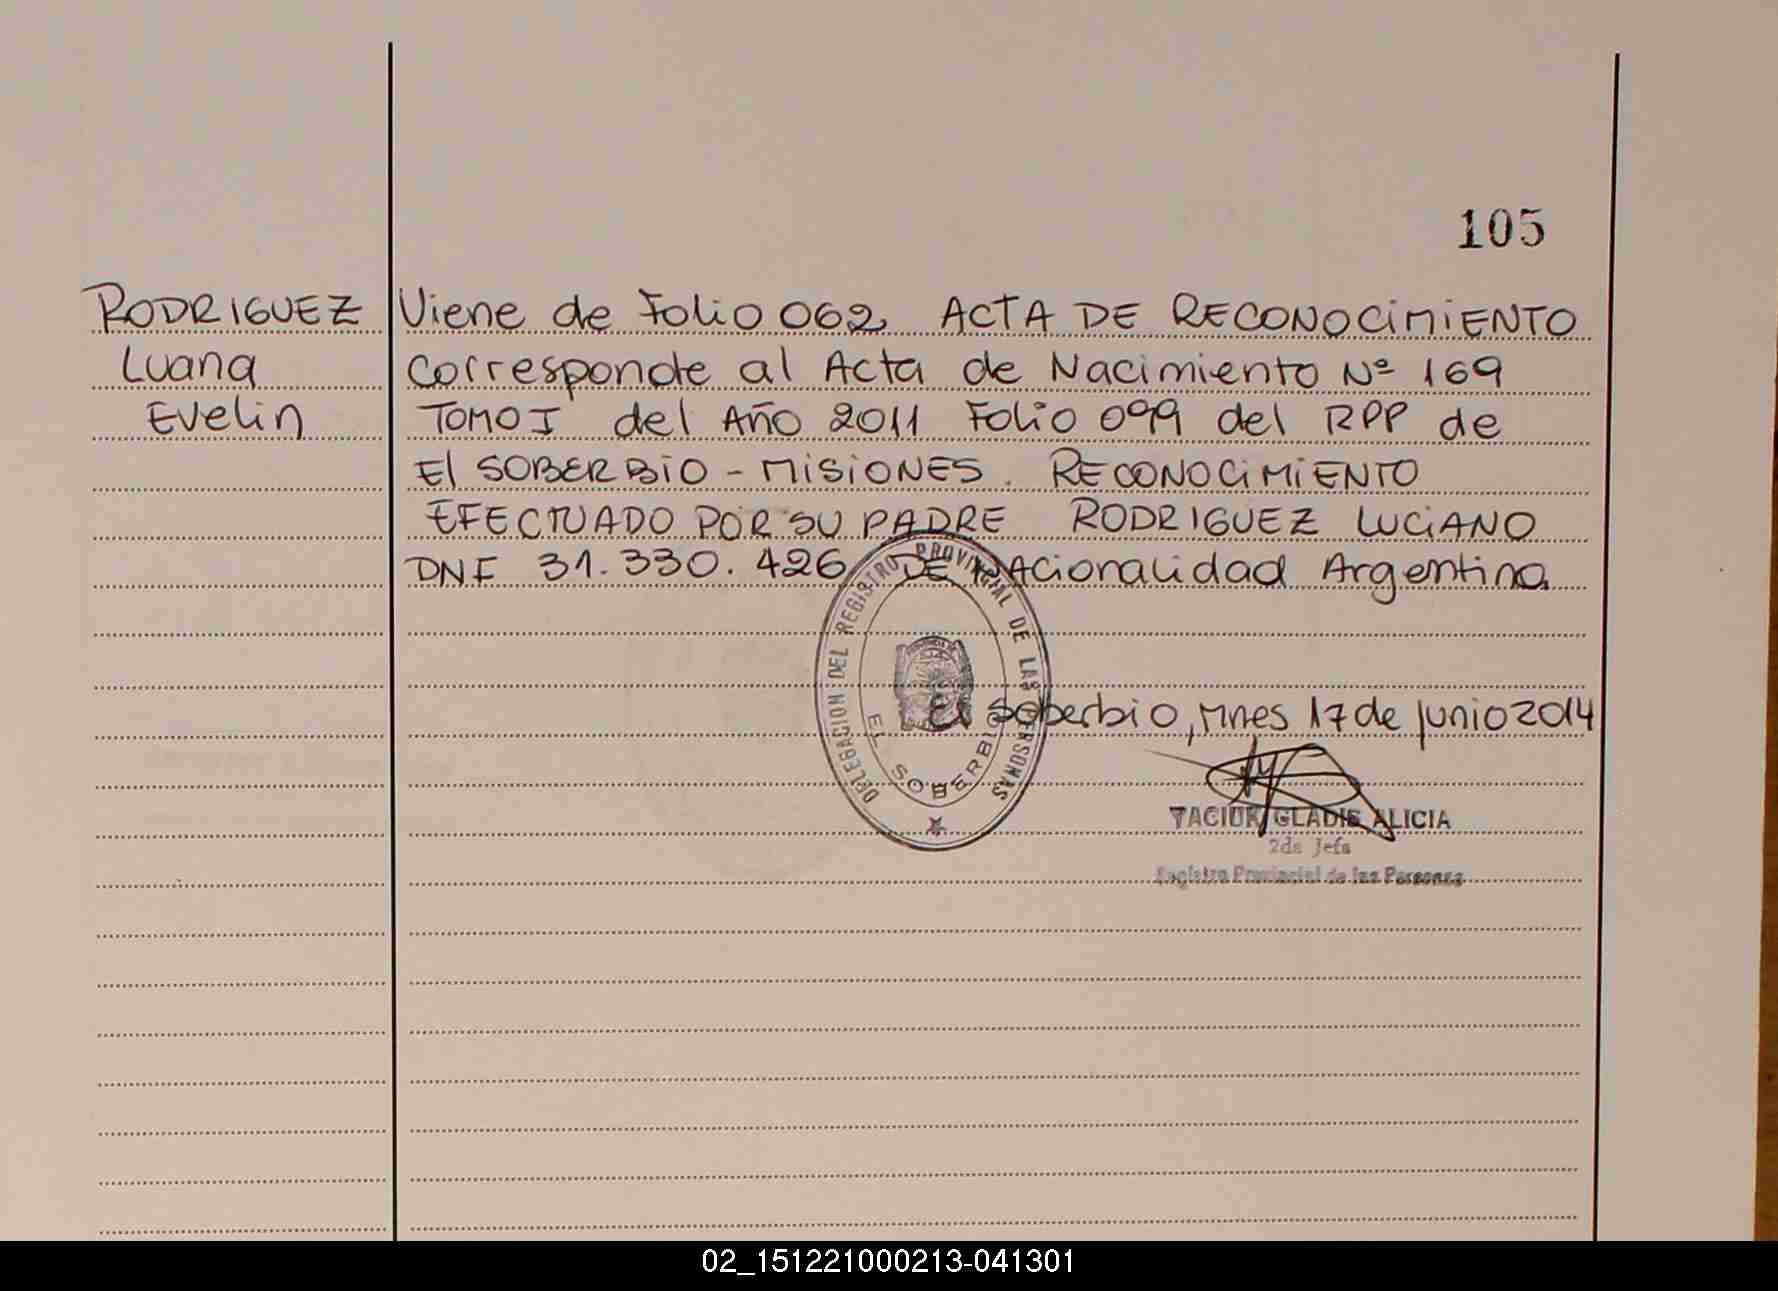 105
RODRIGUEZ
Luana
Evelin
Viene de Folio 062 ACTA DE RECONOCIMIENTO
Corresponde al Acta de Nacimiento Nº 169
TOMO I del Año 2011 Folio 099 del RPP de
El SOBERBIO - MISIONES. RECONOCIMIENTO
EFECTUADO POR SU PADRE RODRIGUEZ LUCIANO
DNI 31.330.426 DE NACionalidad Argentina
DELEGACION DEL REGISTRO PROVINCIAL DE LAS PERSONAS
EL SOBERBIO
El Soberbio, Mnes 17 de junio 2014
TACIUK GLADIS ALICIA
2da Jefa
Registro Provincial de las Personas
02_151221000213-041301